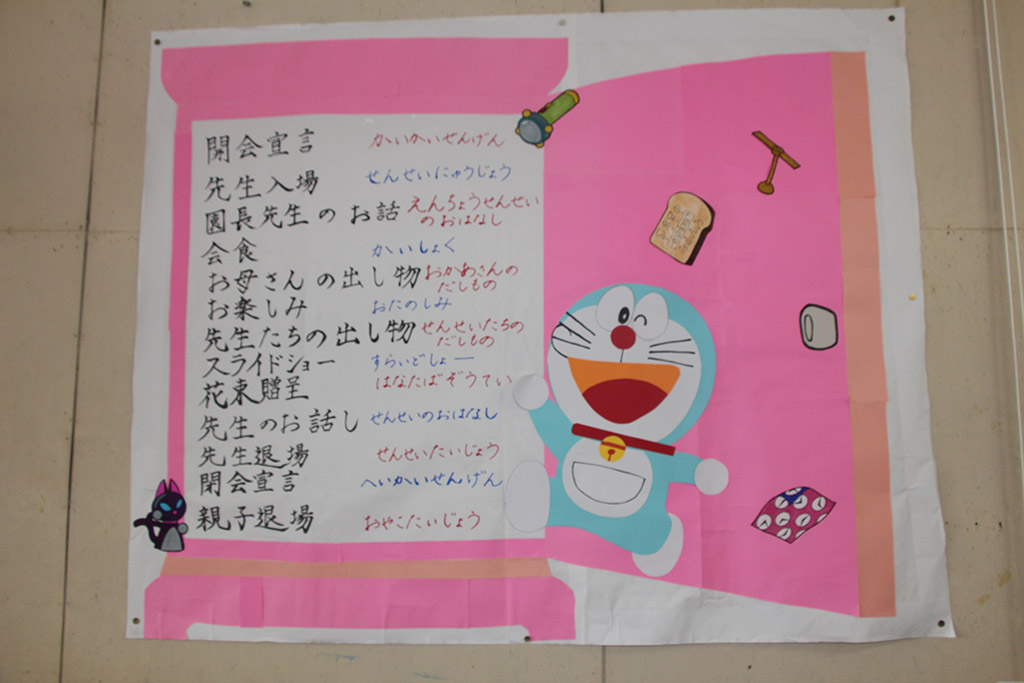 開会宣言 かいかいせんげん
先生入場 せんせいにゅうじょう
園長先生のお話 えんちょうせんせい
のおはなし
会食 かいしょく
お母さんの出し物 おかあさんの
だしもの
お楽しみ おたのしみ
先生たちの出し物 せんせいたちの
だしもの
スライドショー すらいどしょー
花束贈呈 はなたばぞうてい
先生のお話し せんせいのおはなし
先生退場 せんせいたいじょう
閉会宣言 へいかいせんげん
親子退場 おやこたいじょう